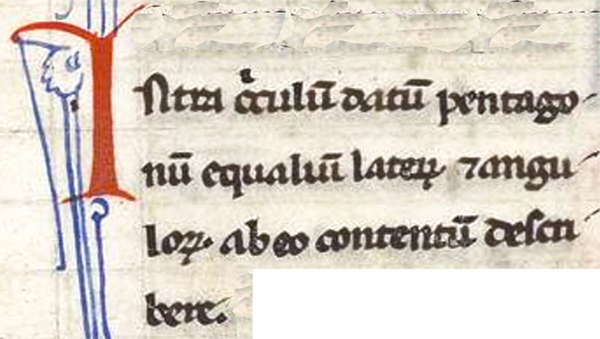 Intra cͥculū datū pentago-
nū equaliū lateꝝ ⁊ angu-
loꝝ· ab eo contentū descri-
bere.